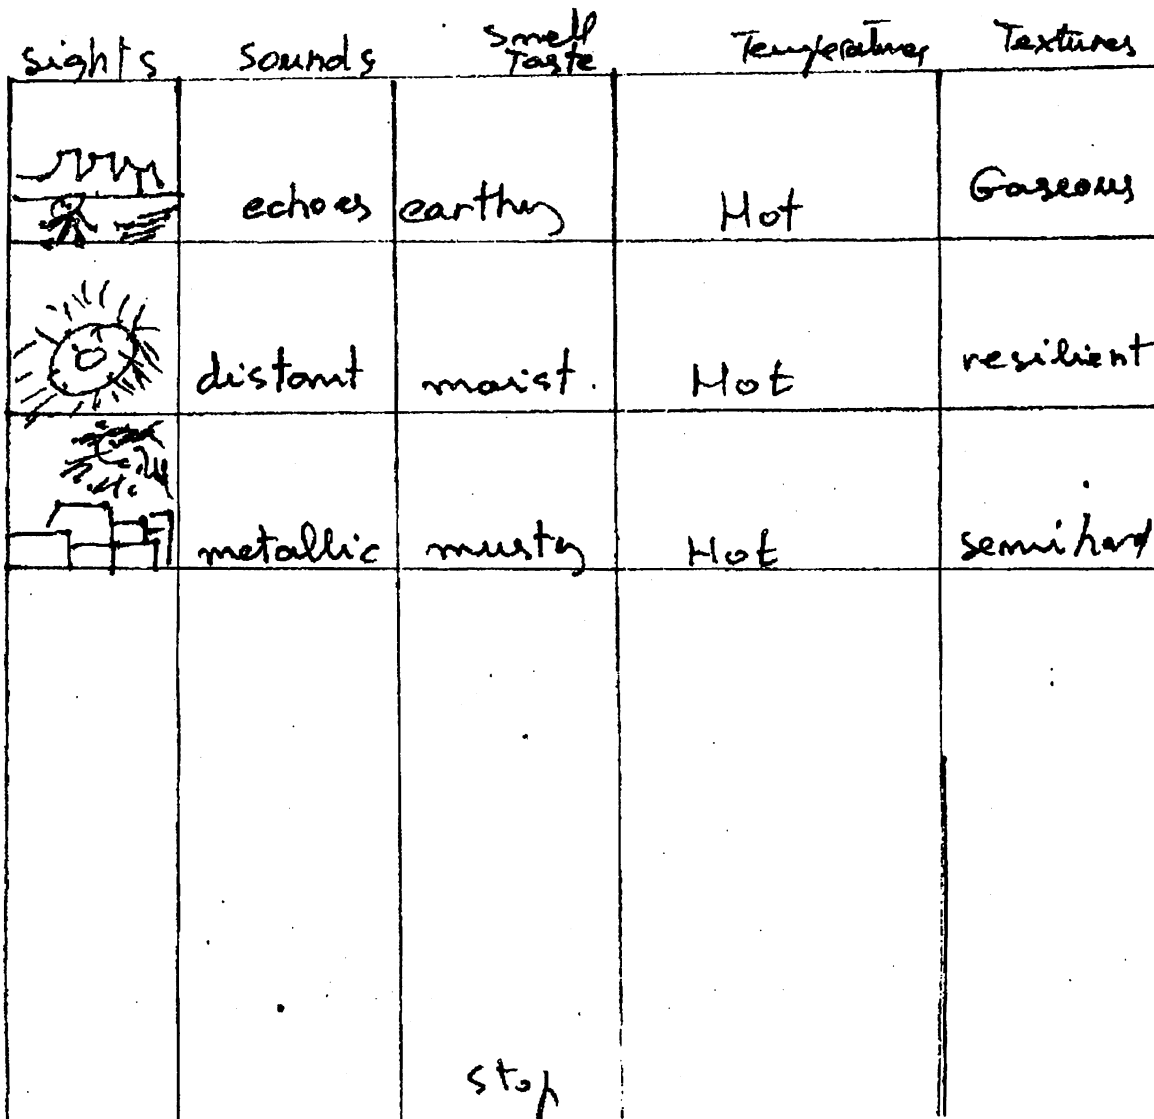 sights sounds Smell Taste Temperatures Textures
echoes earthy Hot Gaseous
distant moist. Hot resilient
metallic musty Hot semi hard
stop